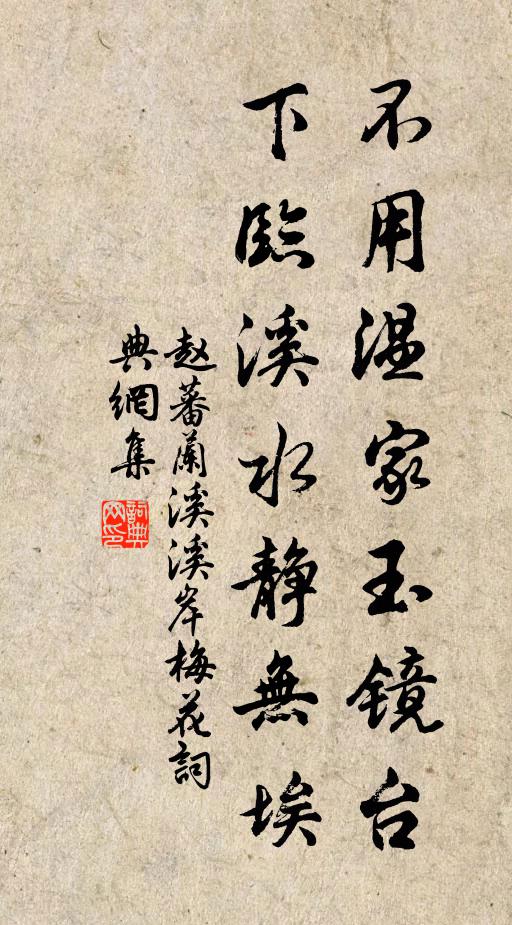 不用温家玉镜台
下臨溪水静無埃
赵蕃蘭溪溪岸梅花詞
典網集
詞典网印